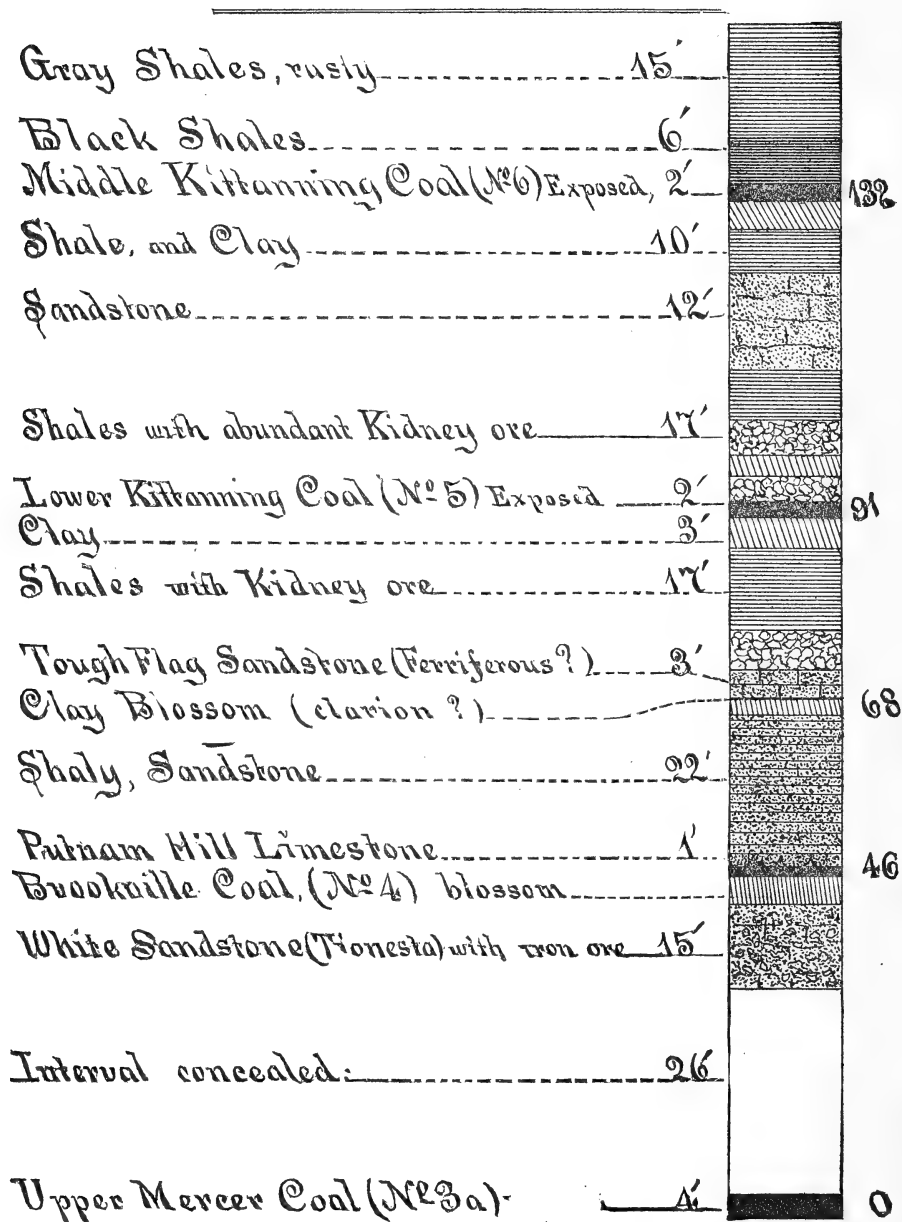 Gray Shales, rusty 15'
Black Shales 6'
Middle Kittanning Coal (No 6) Exposed, 2' 132
Shale, and Clay 10'
Sandstone 12'
Shales with abundant Kidney ore 17'
Lower Kittanning Coal (No 5) Exposed 2' 91
Clay 3'
Shales with Kidney ore 17'
Tough Flag Sandstone (Ferriferous?) 3'
Clay Blossom (clarion?) 68
Shaly, Sandstone 22'
Putnam Hill Limestone 1' 46
Brookville Coal, (No 4) blossom
White Sandstone (Tionesta) with iron ore 15'
Interval concealed: 26'
Upper Mercer Coal (No 3a) 4' 0